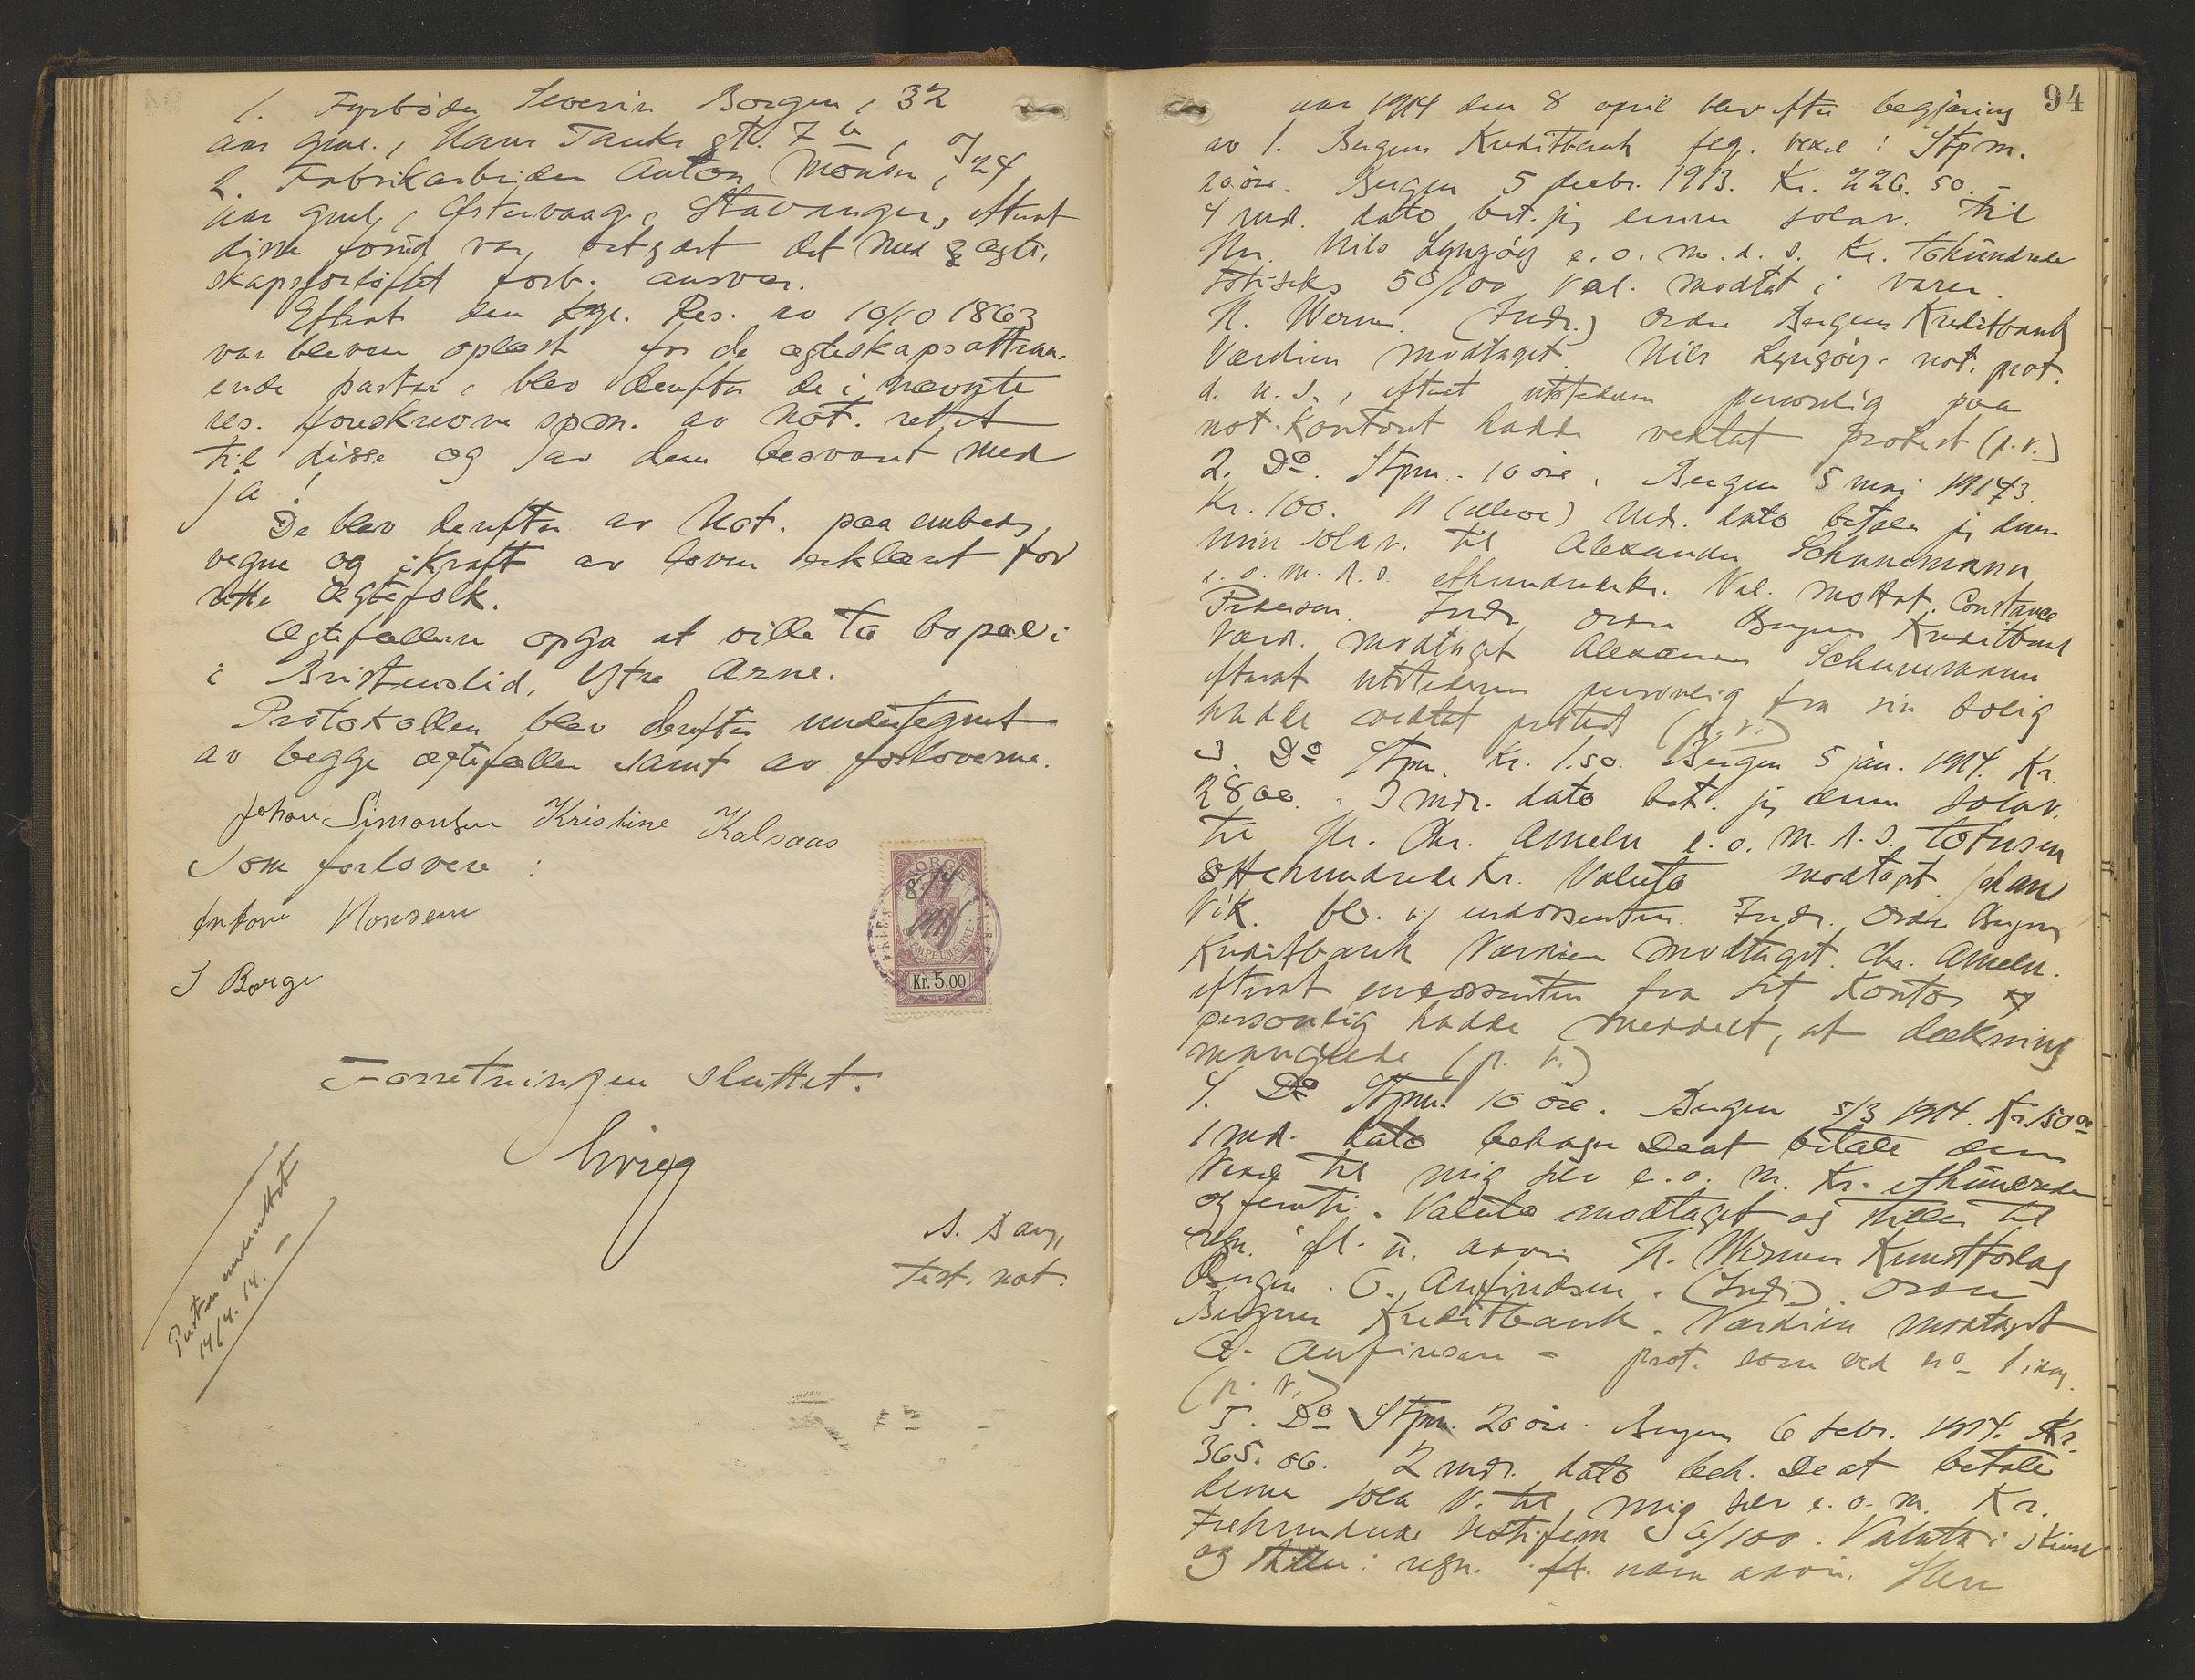 1. Fyrbøder Severin Borgen, 32
aar gml., Hans Tanks gt. 7 b, og
2. Fabrikarbeider Anton Monsen, 24
aar gml, Østervaag, Stavanger, efterat
disse først var betydet det med egte,
skapsforløftet forb. ansvar.
Efterat den kgl. Res. av 10/10 1863
var bleven oplæst for de egteskapsattraa-
ende parter, blev derefter de i nævnte
res. foreskrevne spm. av Not. rettet
til disse og av dem besvart med
ja!
De blev derefter av Not. paa embeds
vegne og i kraft av loven erklært for
rette ægtefolk.
Ægtefællerne opga at ville ta bopæl i
i Bristenslid, Ytre Arne.
Protokollen blev derefter undertegnet
av begge ægtefæller samt av forloverne.
Johan Simonsen Kristine Kalsaas
Som forlovere:
Anton Monsen
S Borge
NORGE
8/4
1914
STEMPELMERKE
Kr. 5.00
Forretningen sluttet.
Grieg
tist. not.
Presten underrettet
14/4. 14.
94
aar 1914 den 8 april blev efter begjæring
av 1. Bergens Kreditbank flg. vexel: Stpm.
20 øre. Bergen 5 decbr. 1913. Kr. 226.50. -
4 md. dato bet. jeg denne solav. til
Hr. Nils Lyngøy e. o. m. d. s. Kr. tohundrede
totiseks 50/100 Val. modtat i varer.
H. Werner. (Indr.) Ordre Bergens Kreditbank
Værdien modtaget. Nils Lyngøy - not. prot.
d. u. s., efterat utstederen personlig paa
not. kontoret hadde vedtat protest (p. v.)
2. Do. Stpm. 10 øre. Bergen 5 mai 1913.
Kr. 100. 11 (elleve) mdr. dato betaler jeg denne
min solav. til Alexander Schunemann
e. o. m. d. s. ethundredekr. Val. mottat. Constance
Pedersen. Indr. Ordre Bergens Kreditbank
Værd. modtaget Alexander Schunemann
efterat utstederen personlig fra sin bolig
hadde vedtat protest (p. v.)
3. Do Stpm. Kr. 1.50. Bergen 5 jan. 1914. Kr.
2800. - 3 mdr. dato bet. jeg denne solav.
til Hr. Chr. Ameln e. o. m. d. s. totusen
ottehundrede Kr. Valuta modtaget Johan
Vik. bl. endossenten. Indr. Ordre Bergens
Kreditbank Værdien modtaget. Chr. Ameln.
efterat endossenten fra sit Kontor
personlig hadde meddelt, at dækning
manglede (p. v.)
4. Do Stpm. 10 øre. Bergen 5/3 1914. Kr. 150 00
1 md. dato behager De at betale denne
Vexel til mig selv e. o. m. Kr. ethundrede
og femti. Valuta modtaget og stilles til
regn. ifl. u. avvis H. Werners Kunstforlag
Bergen. O. Anfindsen. (Indr.) Ordre
Bergens Kreditbank. Værdien modtaget
O. Anfinsen - prot. som ved no 1 idag.
(p. v.)
5. Do Stpm. 20 øre. Bergen 6 febr. 1914. Kr.
365.06. 2 mdr. dato beh. De at betale
denne sola V. til mig selv e. o. m. Kr.
trehundrede sekstifem 6/100. Valuta i skind
og stilles i regn. uten avvis. Herr